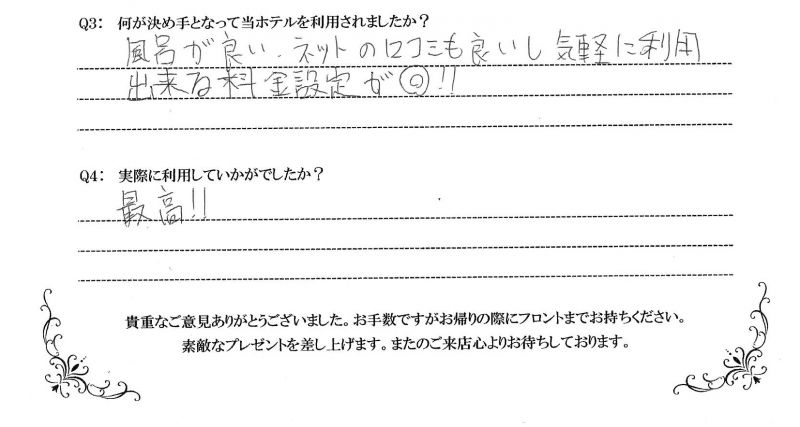 Q3: 何が決め手となって当ホテルを利用されましたか？
風呂が良い、ネットの口コミも良いし気軽に利用
出来る料金設定が◎!!
Q4: 実際に利用していかがでしたか？
最高!!
貴重なご意見ありがとうございました。お手数ですがお帰りの際にフロントまでお持ちください。
素敵なプレゼントを差し上げます。またのご来店心よりお待ちしております。